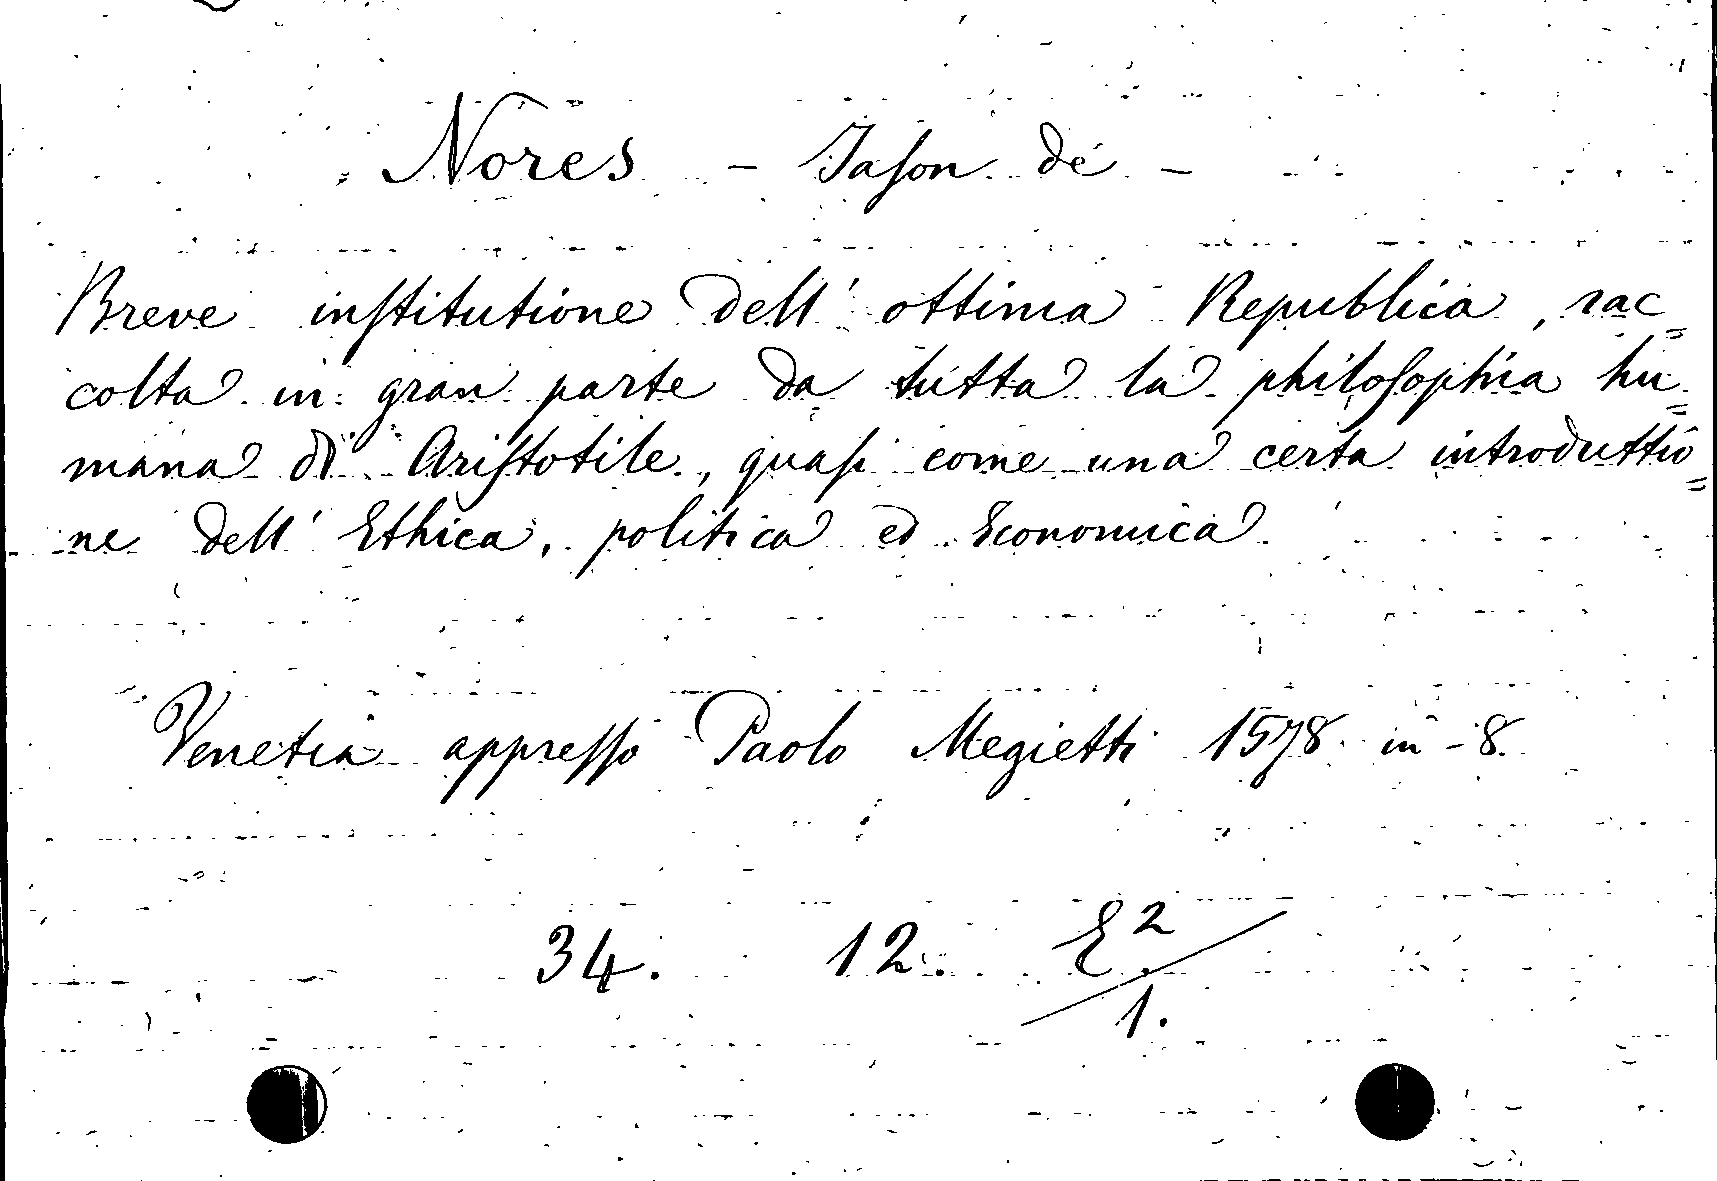 Nores - Jaſon de -
Breve inſtitutione dell' ottima Republica, rac=
colta in gran parte da tutta la philoſophia hu=
mana di Ariſtotile, quaſi come una certa introduttio=
ne dell' Ethica, politica ed Economica
Venetia appreſſo Paolo Megietti 1578. in-8.
34. 12. E2/1.